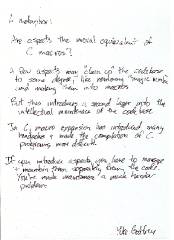 A metaphor:
Are aspects the moral equivalent of
C macros?
A few aspects may "clean up" the codebase
to some degree, like renaming "magic numbers"
and making them into macros
But this introduces a second layer into the
intellectual maintenance of the code base
In C, macro expansion has introduced many
headaches & made the compilation of C
programs more difficult.
If you introduce aspects, you have to manage
& maintain them separately from the code.
You've made maintenance a much harder
problem.
Godfrey